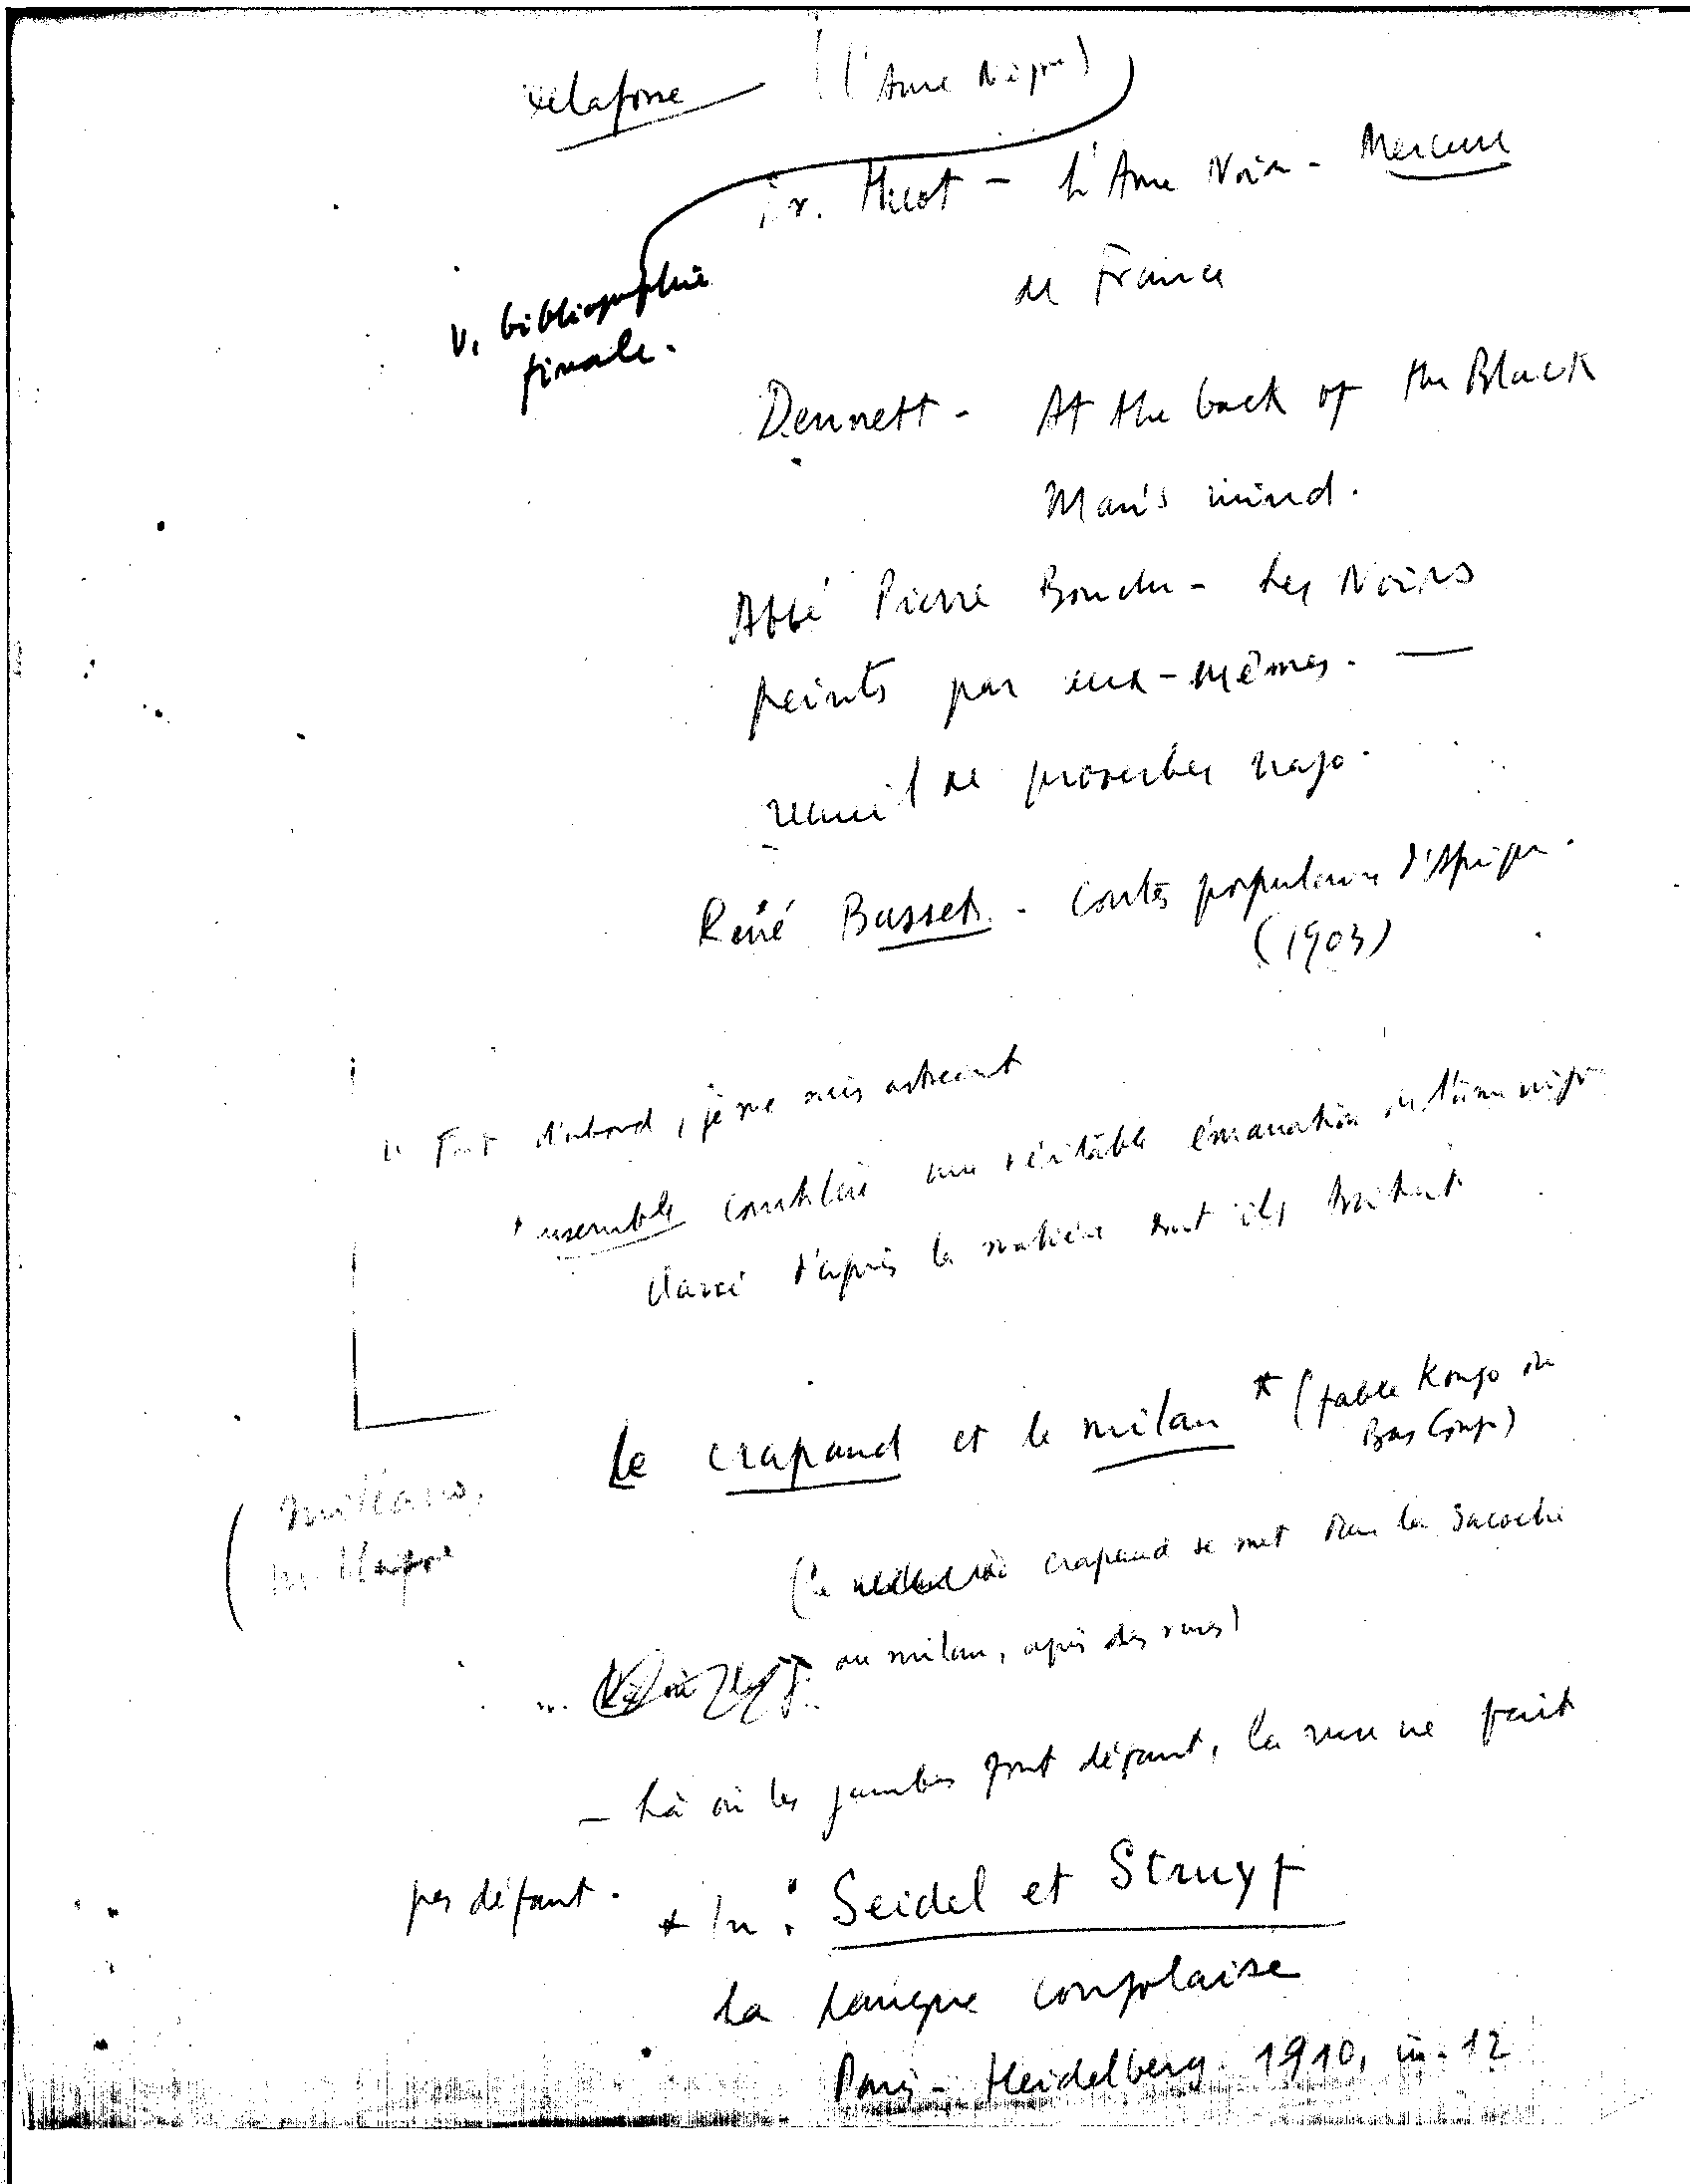 Delafosse (l'Ame Nègre)
Fr. Hicot - L'Ame Noire - Mercure
de France
v. bibliographie
finale.
Dennett - At the back of the Black
Man's mind.
Abbé Pierre Bouche - Les Noirs
peints par eux-mêmes. —
recueil de proverbes nago.
René Basset. - Contes populaires d'Afrique.
(1903)
" Tout d'abord, je me suis astreint
ensemble constitue une véritable émanation de l'âme nègre
classé d'après la matière dont ils traitent
Le crapaud et le milan * (fable Kongo du
Bas Congo)
(le crapaud se met dans la sacoche
du milan, après des ruses)
— Là où les jambes font défaut, la ruse ne fait
pas défaut.
* In : Seidel et Struyf
La Langue congolaise
Paris - Heidelberg. 1910, in-12